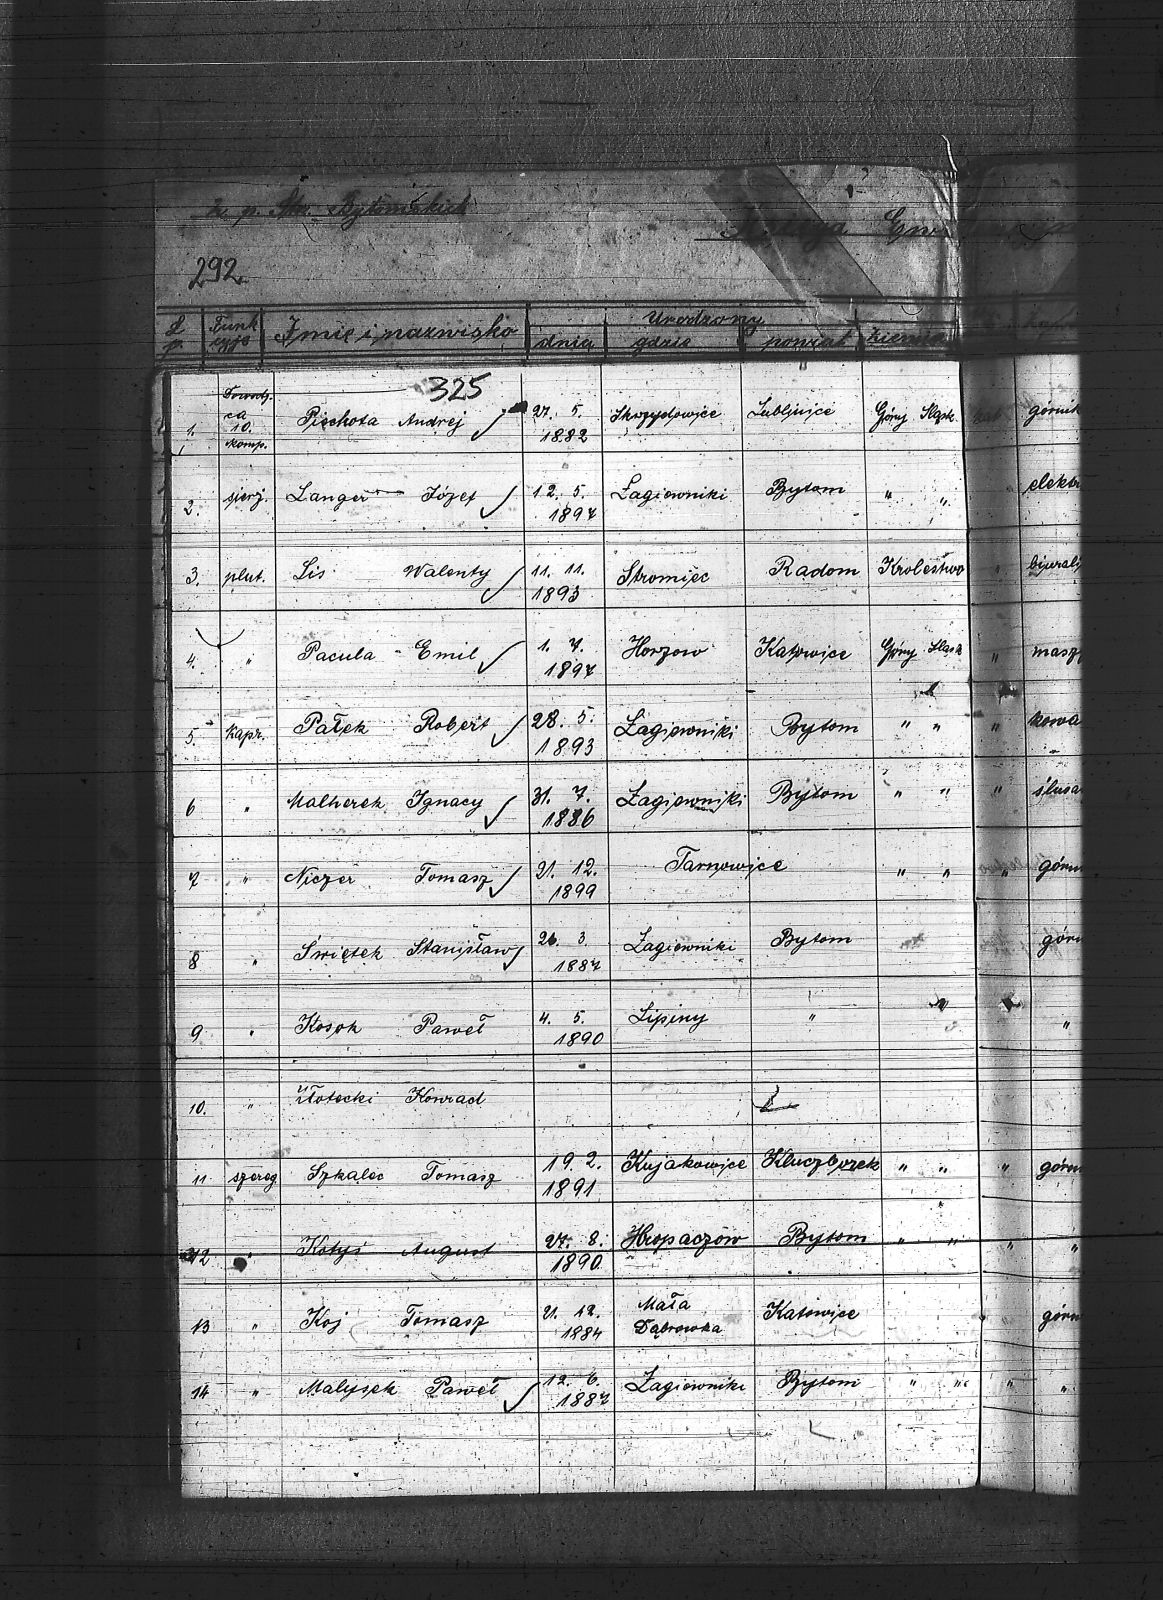 2. p. Strz. Bytomskich
Księga Ewi
292
L p. Funkcyja Imię i nazwisko Urodzony
dnia gdzie powiat ziemia
325
1. Dowódzca 10. komp. Piechota Andrej 27. 5. 1882 Skrzydłowice Lubliniec Górny Śląsk górnik
2. sierj. Langer Józef 12. 5. 1897 Łagiewniki Bytom " " " elektr
3. plut. Lis Walenty 11. 11. 1893 Stromiec Radom Krolestwo " biurali
4. " Pacula Emil 1. 7. 1897 Horzow Katowice Górny Śląsk " masz
5. kapr. Pałek Robert 28. 5. 1893 Łagiewniki Bytom " " " kowa
6 " Malherek Ignacy 31. 7. 1886 Łagiewniki Bytom " " " ślusa
7 " Niczer Tomasz 21. 12. 1899 Tarnowice " " " górn
8 " Świętek Stanisław 26. 3. 1887 Łagiewniki Bytom górn
9 " Kosok Paweł 4. 5. 1890 Lipiny " "
10. " Złotecki Konrad
11 szereg Szkalec Tomasz 19. 2. 1891 Kujakowice Kluczborek " " " górn
12 " Kotyś August 27. 8. 1890 Hropaczów Bytom " " " "
13 " Koj Tomasz 21. 12. 1884 Mała Dąbrowka Katowice górn
14 " Malysek Paweł 12. 6. 1887 Łagiewniki Bytom " " " "